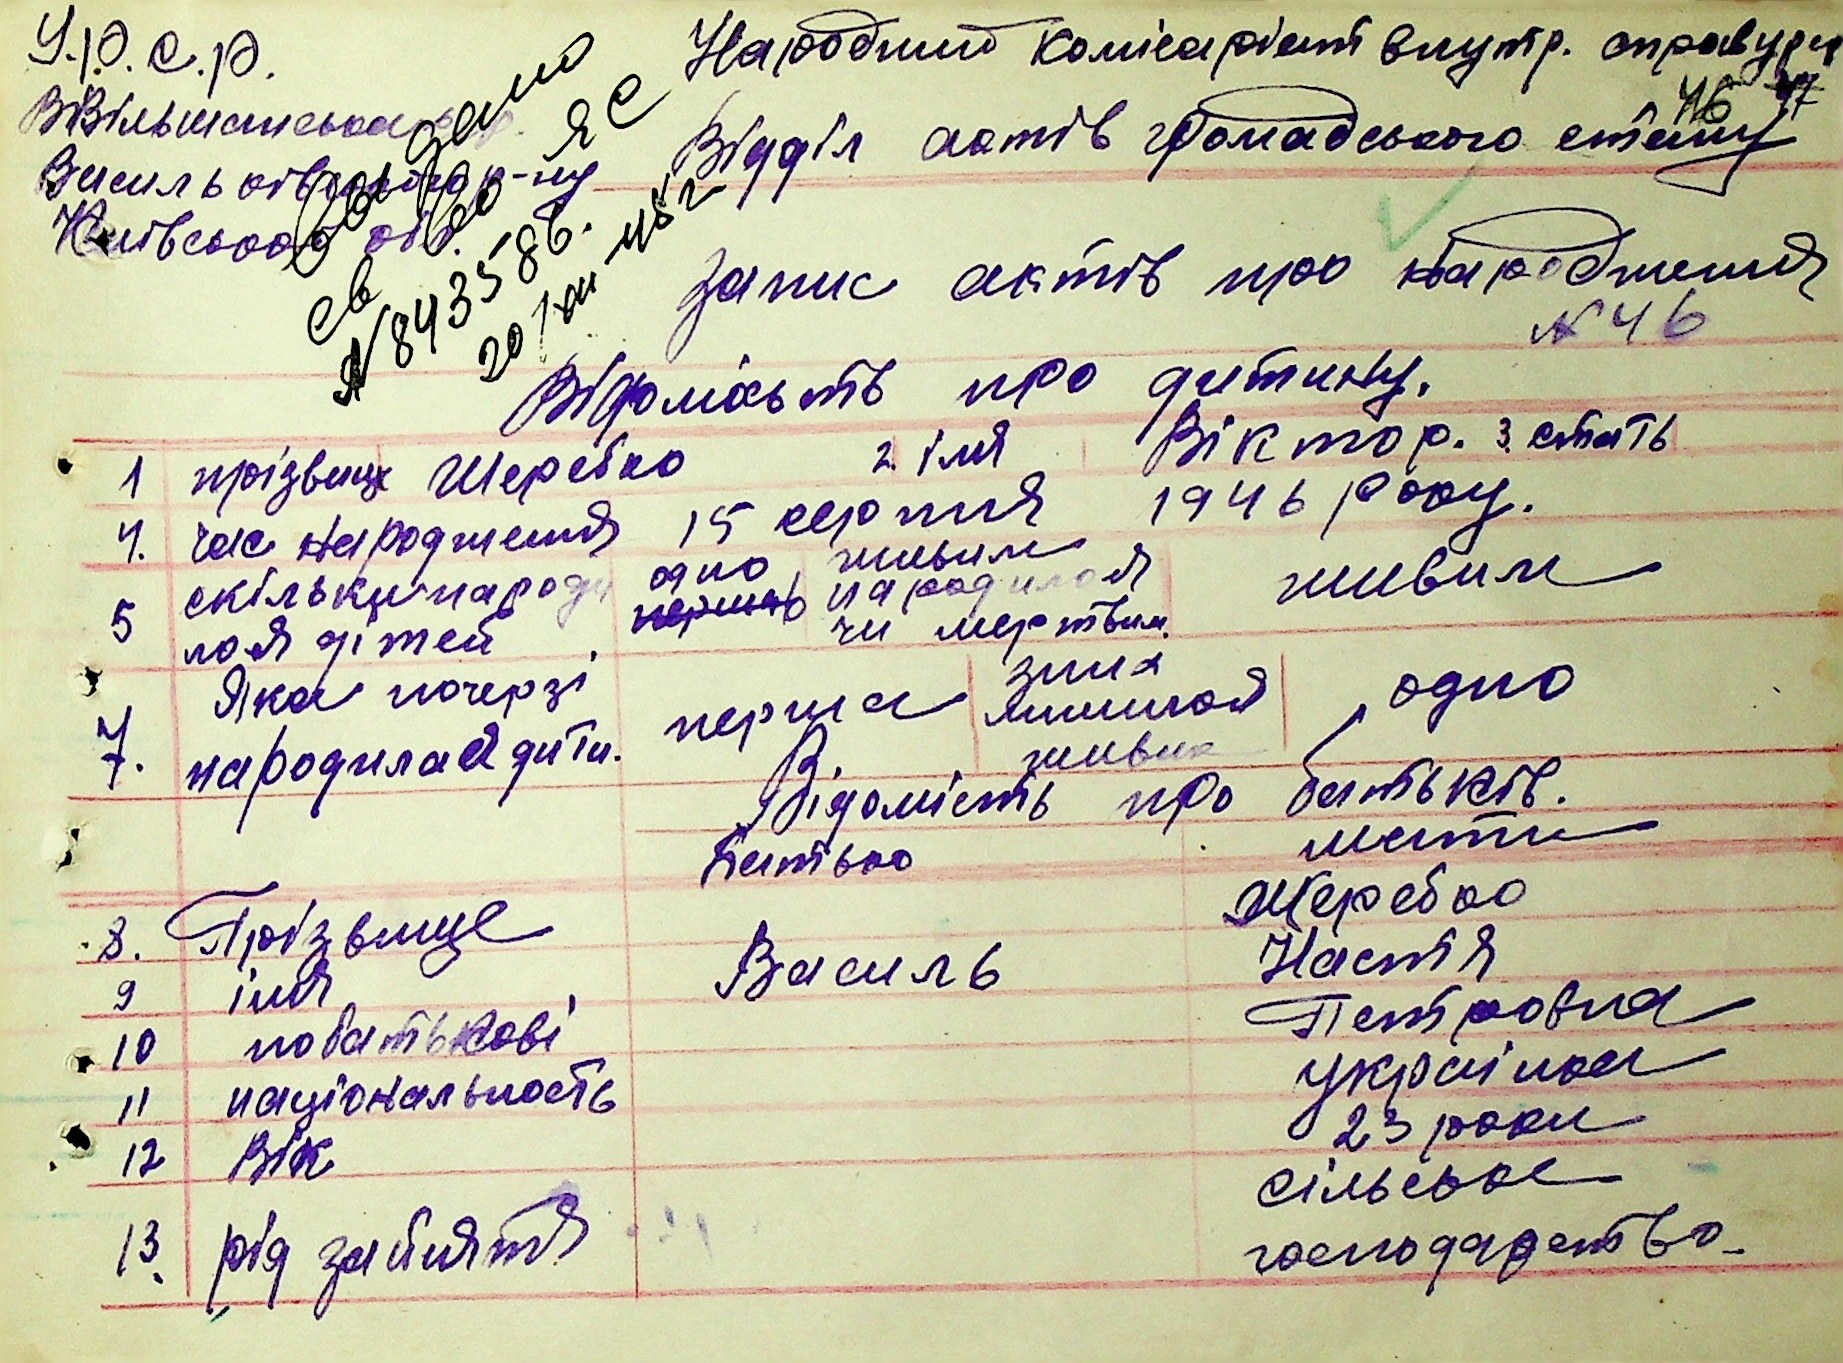 У.Р.С.Р.
Народний комісаріят внутр. справ
46 47
Вільшанська
Васильківського р-ну
Відділ актів громадського стану
Київської обл.
Видано
св во ЯЄ
№ 843586.
20/XII-46 г
Запис актів про народження
№ 46
Відомість про дитину.
1 прізвище Жеребко 2. імя Віктор. 3. стать
4. час народження 15 серпня 1946 року.
5 скільки народилося дітей одно живим народилося чи мертвим. живим
7. Яка по черзі народилася дити. перша з них лишилося живих одно
Відомість про батьків.
батько мати
8. Прізвище Жеребко
9 імя Василь Настя
10 по батькові Петровна
11 національность українка
12 Вік 23 роки
13. рід заняття сільське господарство